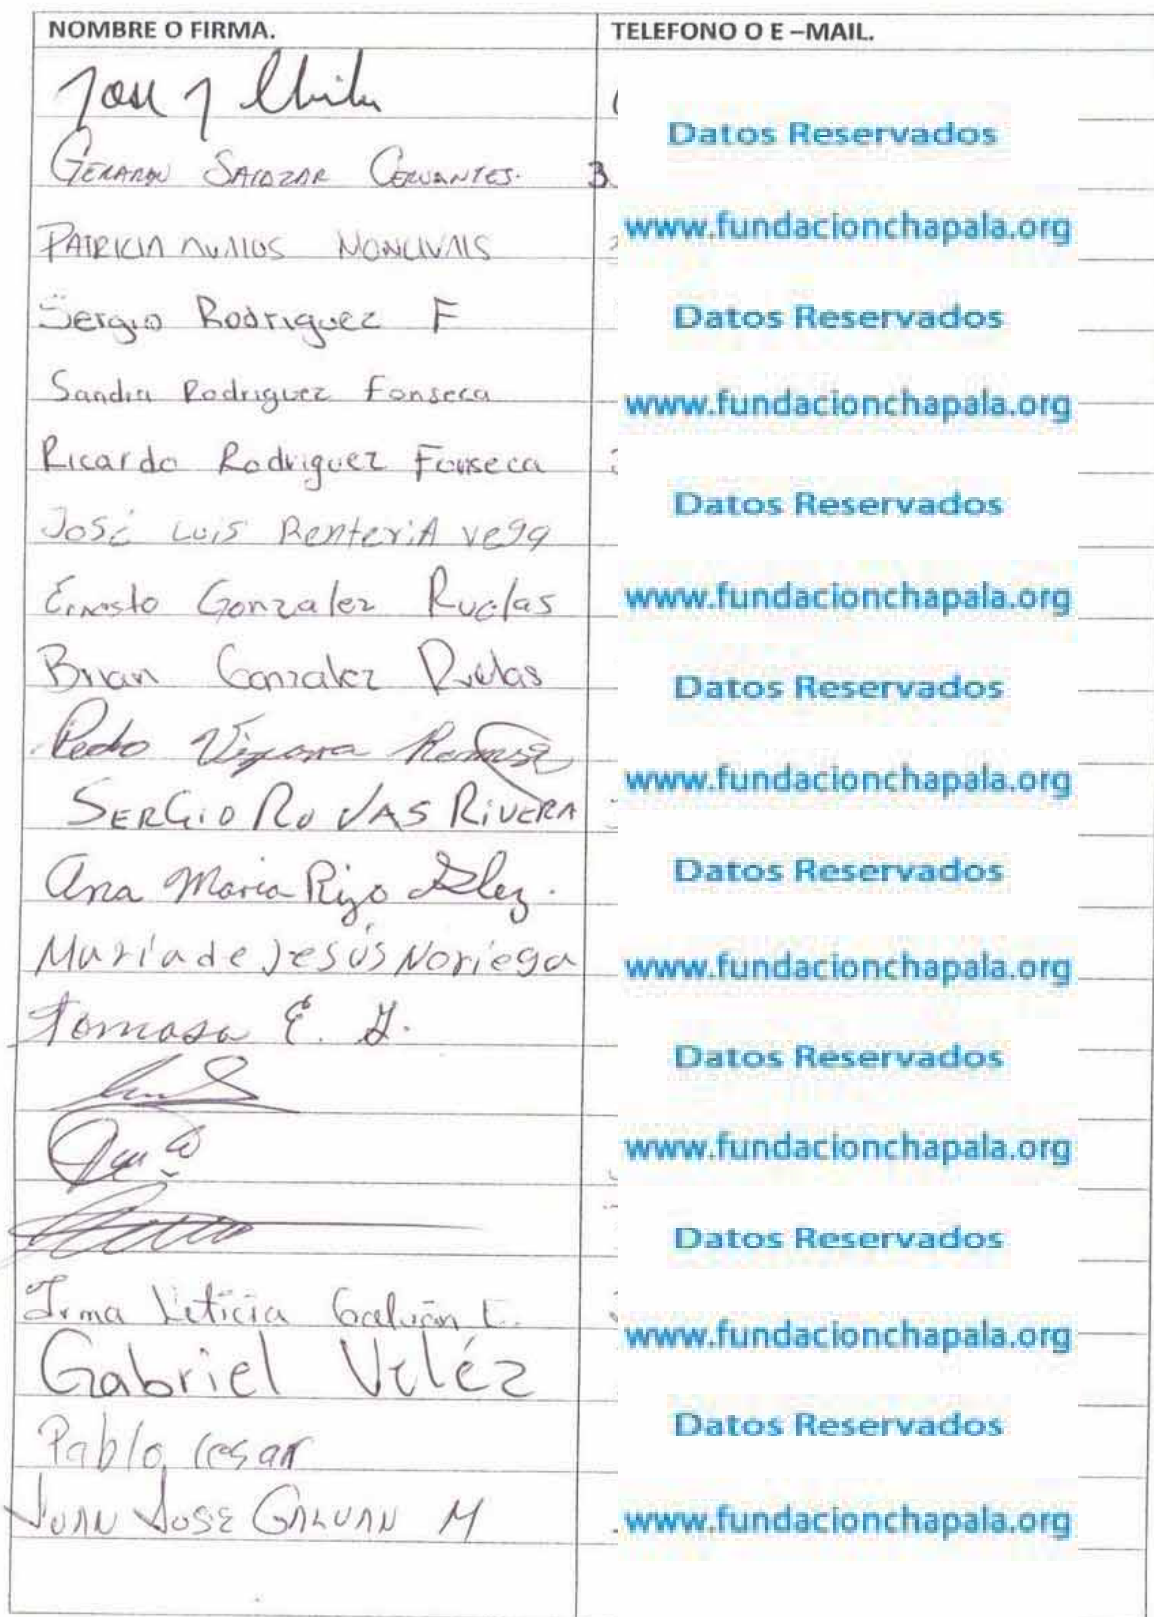 NOMBRE O FIRMA. TELEFONO O E –MAIL.
Jose
Datos Reservados
GERARDO SALAZAR CERVANTES. 3
www.fundacionchapala.org
PATRICIA MONCIVAIS
Sergio Rodriguez F
Datos Reservados
Sandra Rodriguez Fonseca
www.fundacionchapala.org
Ricardo Rodriguez Fonseca
Datos Reservados
José Luis RenteriA vega
Ernesto Gonzalez Ruelas
www.fundacionchapala.org
Brian Gonzalez Ruelas
Datos Reservados
Pedro Ramirez
www.fundacionchapala.org
SERGIO RIVERA
Ana Maria Rizo Glez.
Datos Reservados
María de Jesús Noriega
www.fundacionchapala.org
Tomasa E.
Datos Reservados
www.fundacionchapala.org
Datos Reservados
Irma Leticia Galván
www.fundacionchapala.org
Gabriel Veléz
Pablo cesar
Datos Reservados
JUAN JOSE GALVAN M
www.fundacionchapala.org